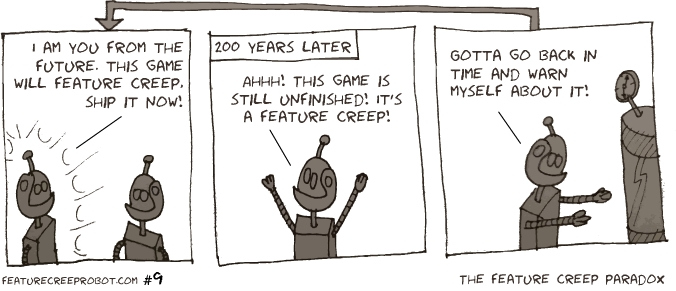 I AM YOU FROM THE
FUTURE. THIS GAME
WILL FEATURE CREEP.
SHIP IT NOW!
200 YEARS LATER
AHHH! THIS GAME IS
STILL UNFINISHED! IT'S
A FEATURE CREEP!
GOTTA GO BACK IN
TIME AND WARN
MYSELF ABOUT IT!
FEATURECREEPROBOT.COM #9
THE FEATURE CREEP PARADOX